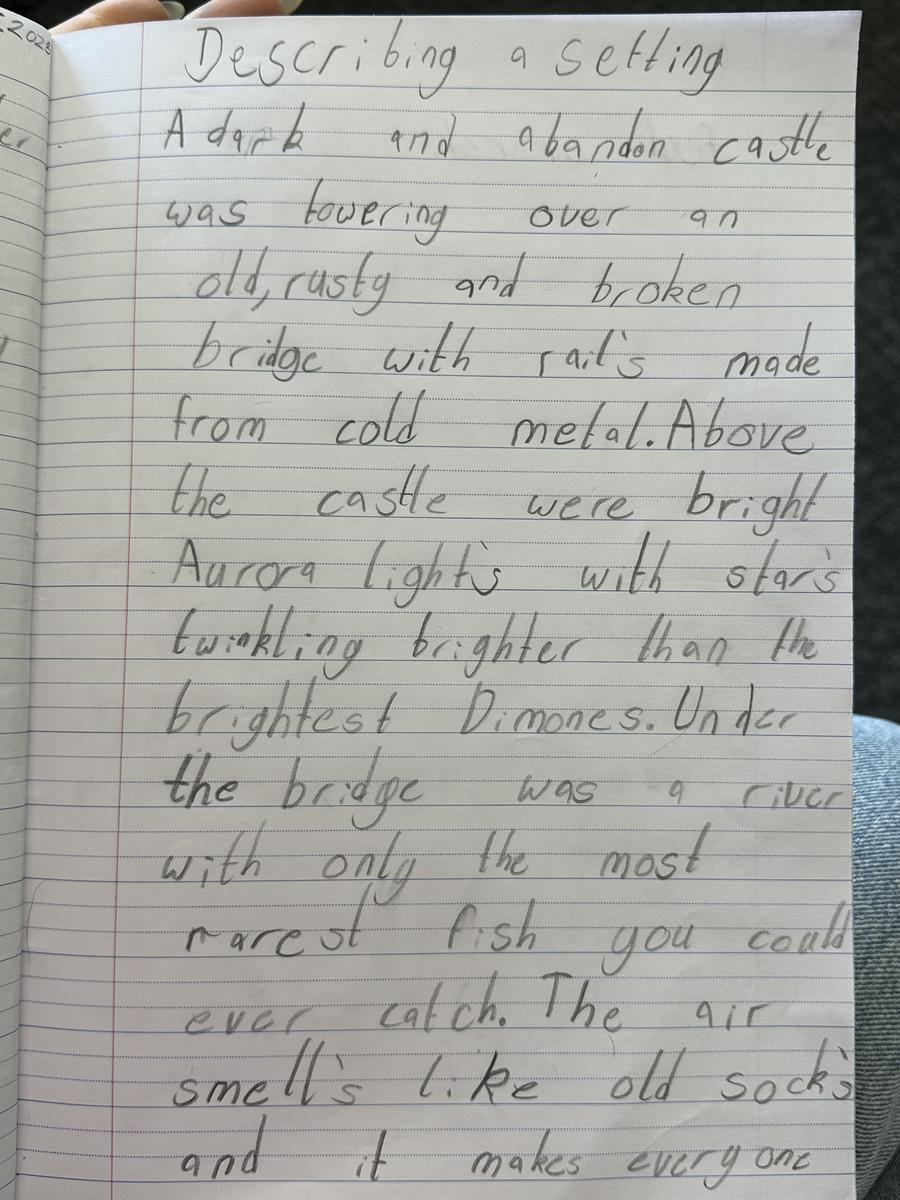 2023
er
Describing a setting
A dark and abandon castle
was towering over an
old, rusty and broken
bridge with rail's made
from cold metal. Above
the castle were bright
Aurora light's with star's
twinkling brighter than the
brightest Dimones. Under
the bridge was a river
with only the most
rarest fish you could
ever catch. The air
smell's like old sock's
and it makes everyone